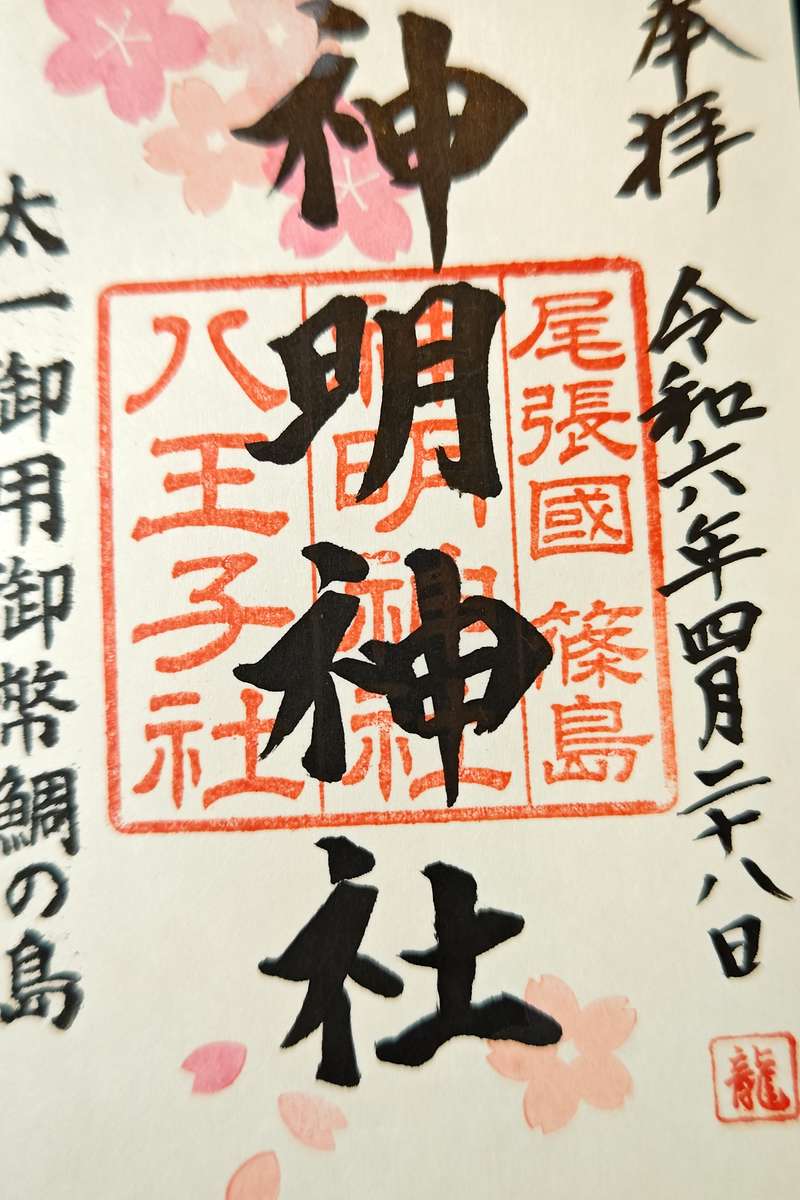 奉拝
令和六年四月二十八日
神明神社
尾張國 篠島
神明神社
八王子社
太一御用御幣鯛の島
龍